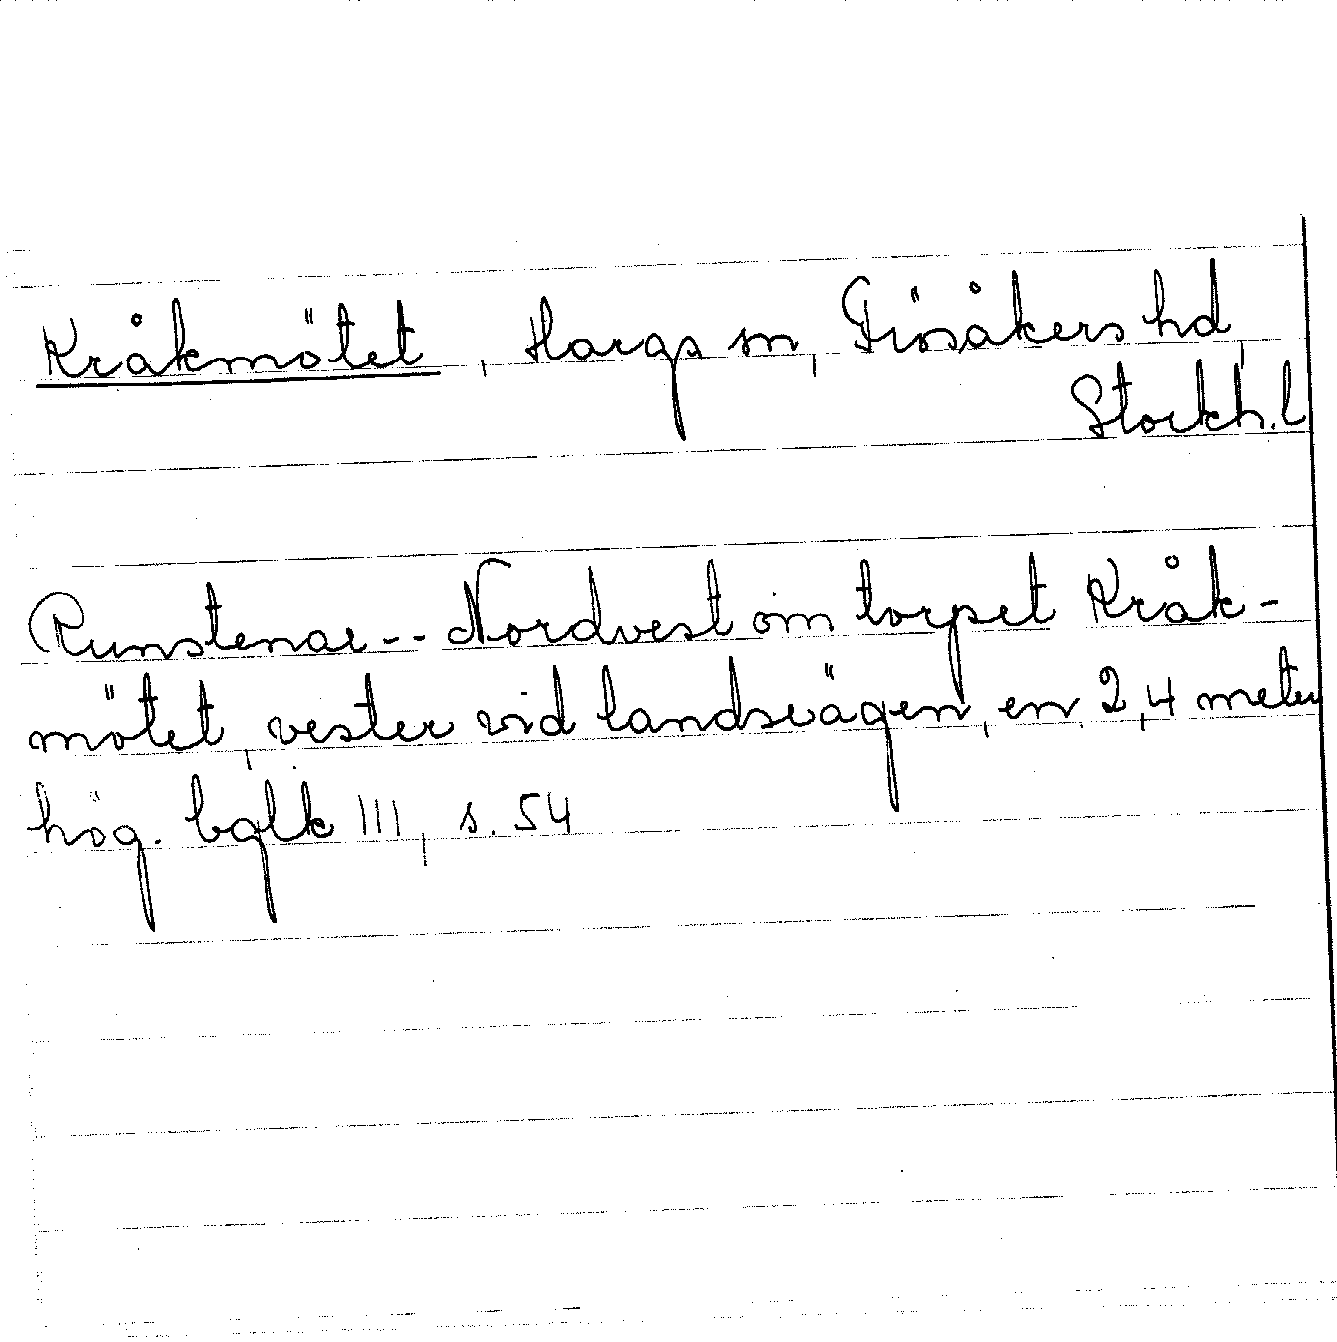 Kråkmötet, Hargs sn, Frösåkers hd,
Stockh. l
Runstenar -- Nordvest om torpet Kråk-
mötet, vester vid landsvägen, en 2,4 meter
hög. bglk III, s. 54